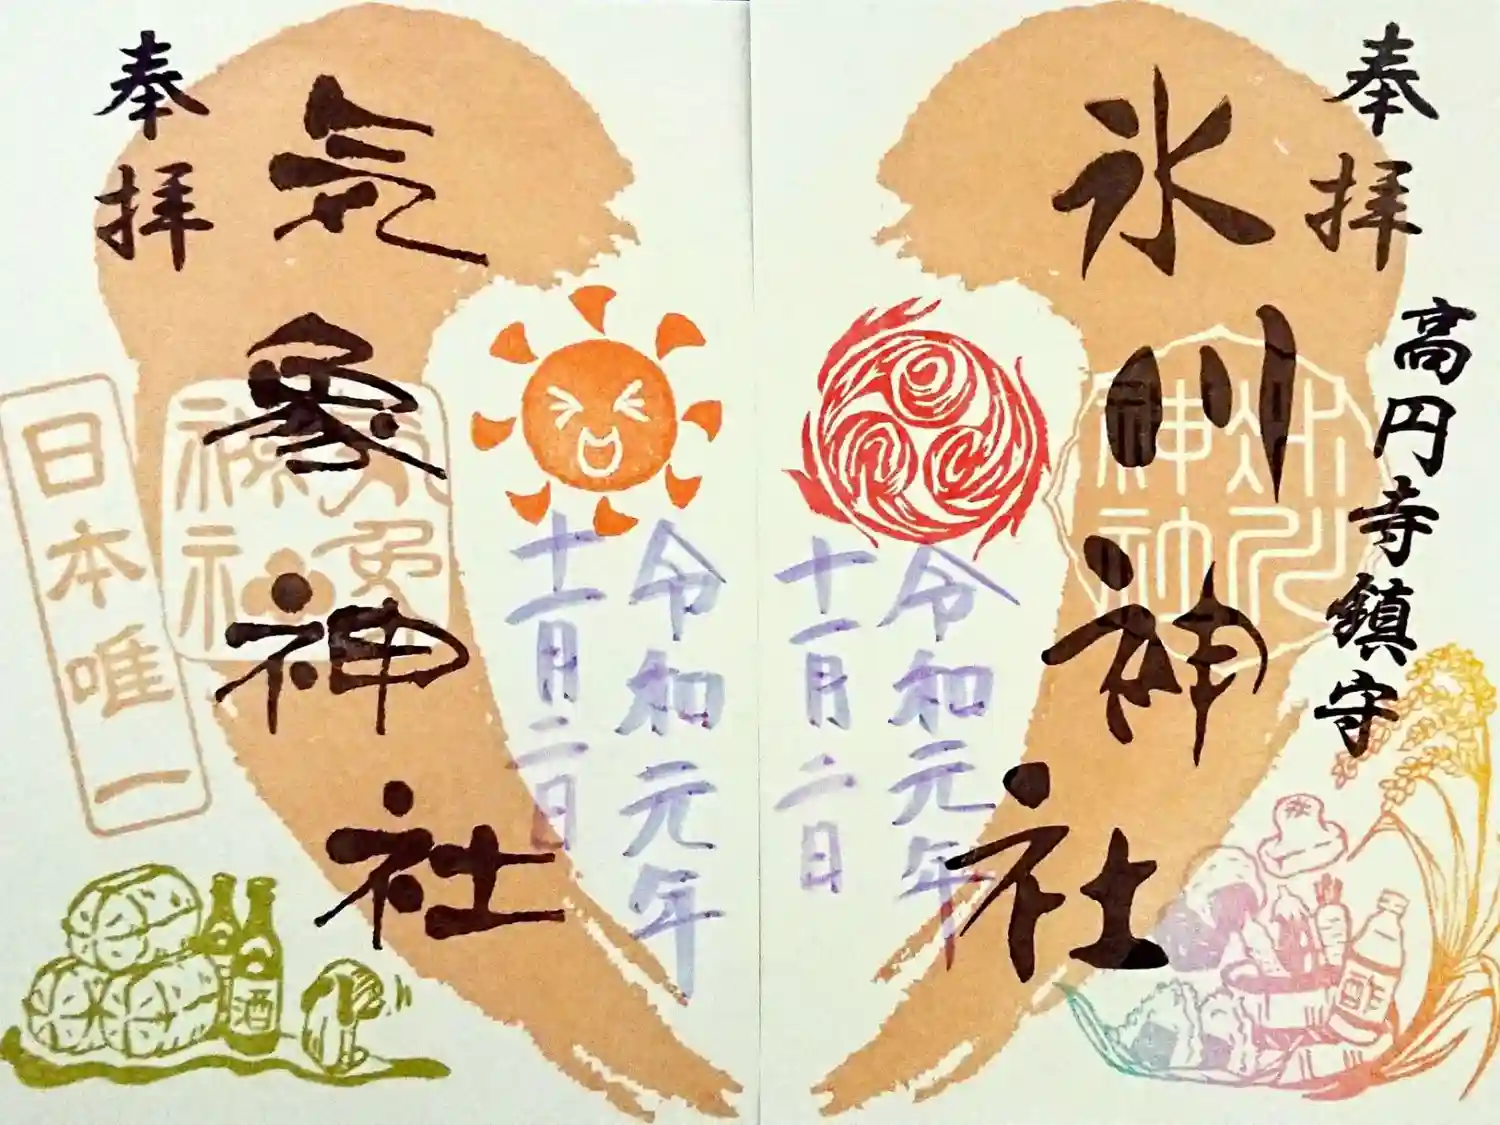 奉拝
高円寺鎮守
氷川神社
氷川神社
令和元年
十一月二日
酢
奉拝
気象神社
気象神社
日本唯一
令和元年
十一月二日
酒